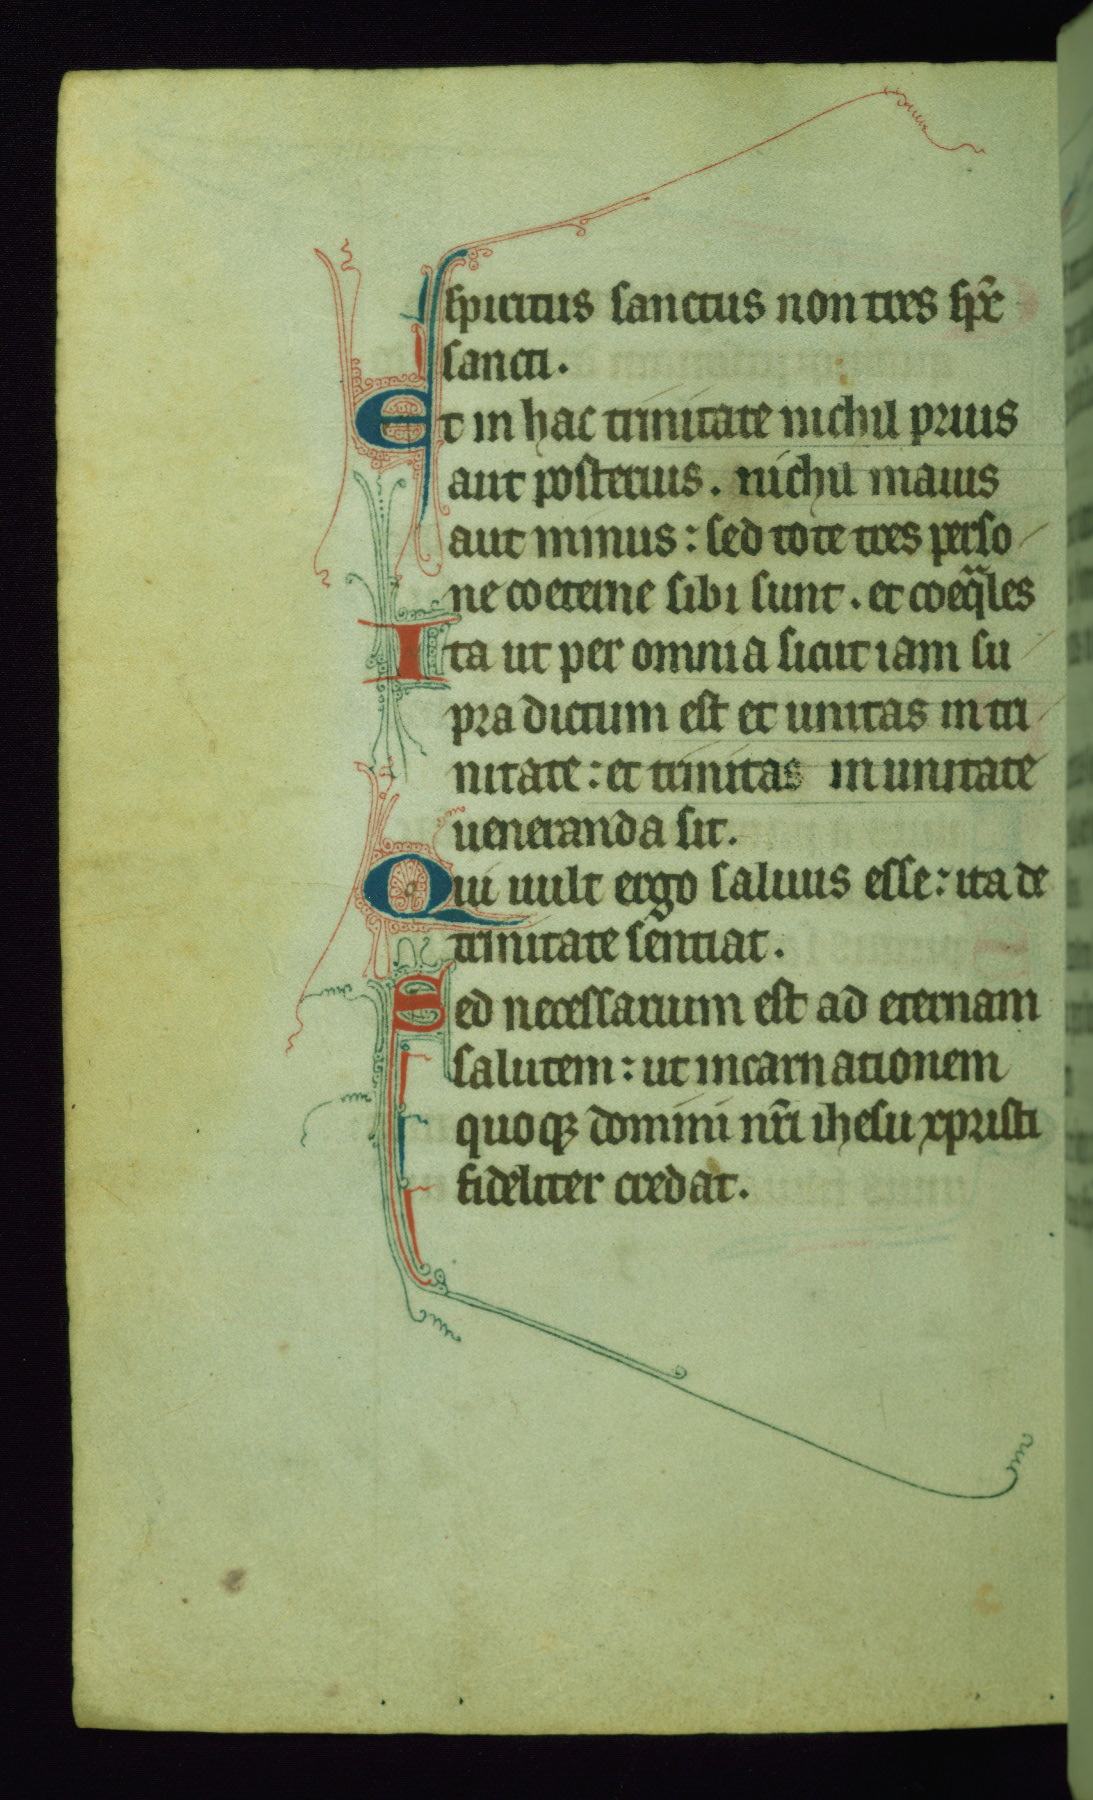 spiritus sanctus non tres sp̄c
sancti.
Et in hac trinitate nichil prius
aut posterius. nichil maius
aut minus: sed tote tres perso
ne coeterne sibi sunt. et coeq̄les
Ita ut per omnia sicut iam su
pra dictum est et unitas in tri
nitate: et trinitas in unitate
ueneranda sit.
Qui uult ergo saluus esse: ita de
trinitate sentiat.
Sed necessarium est ad eternam
salutem: ut incarnationem
quoqꝫ domini nr̄i ihesu xpristi
fideliter credat.